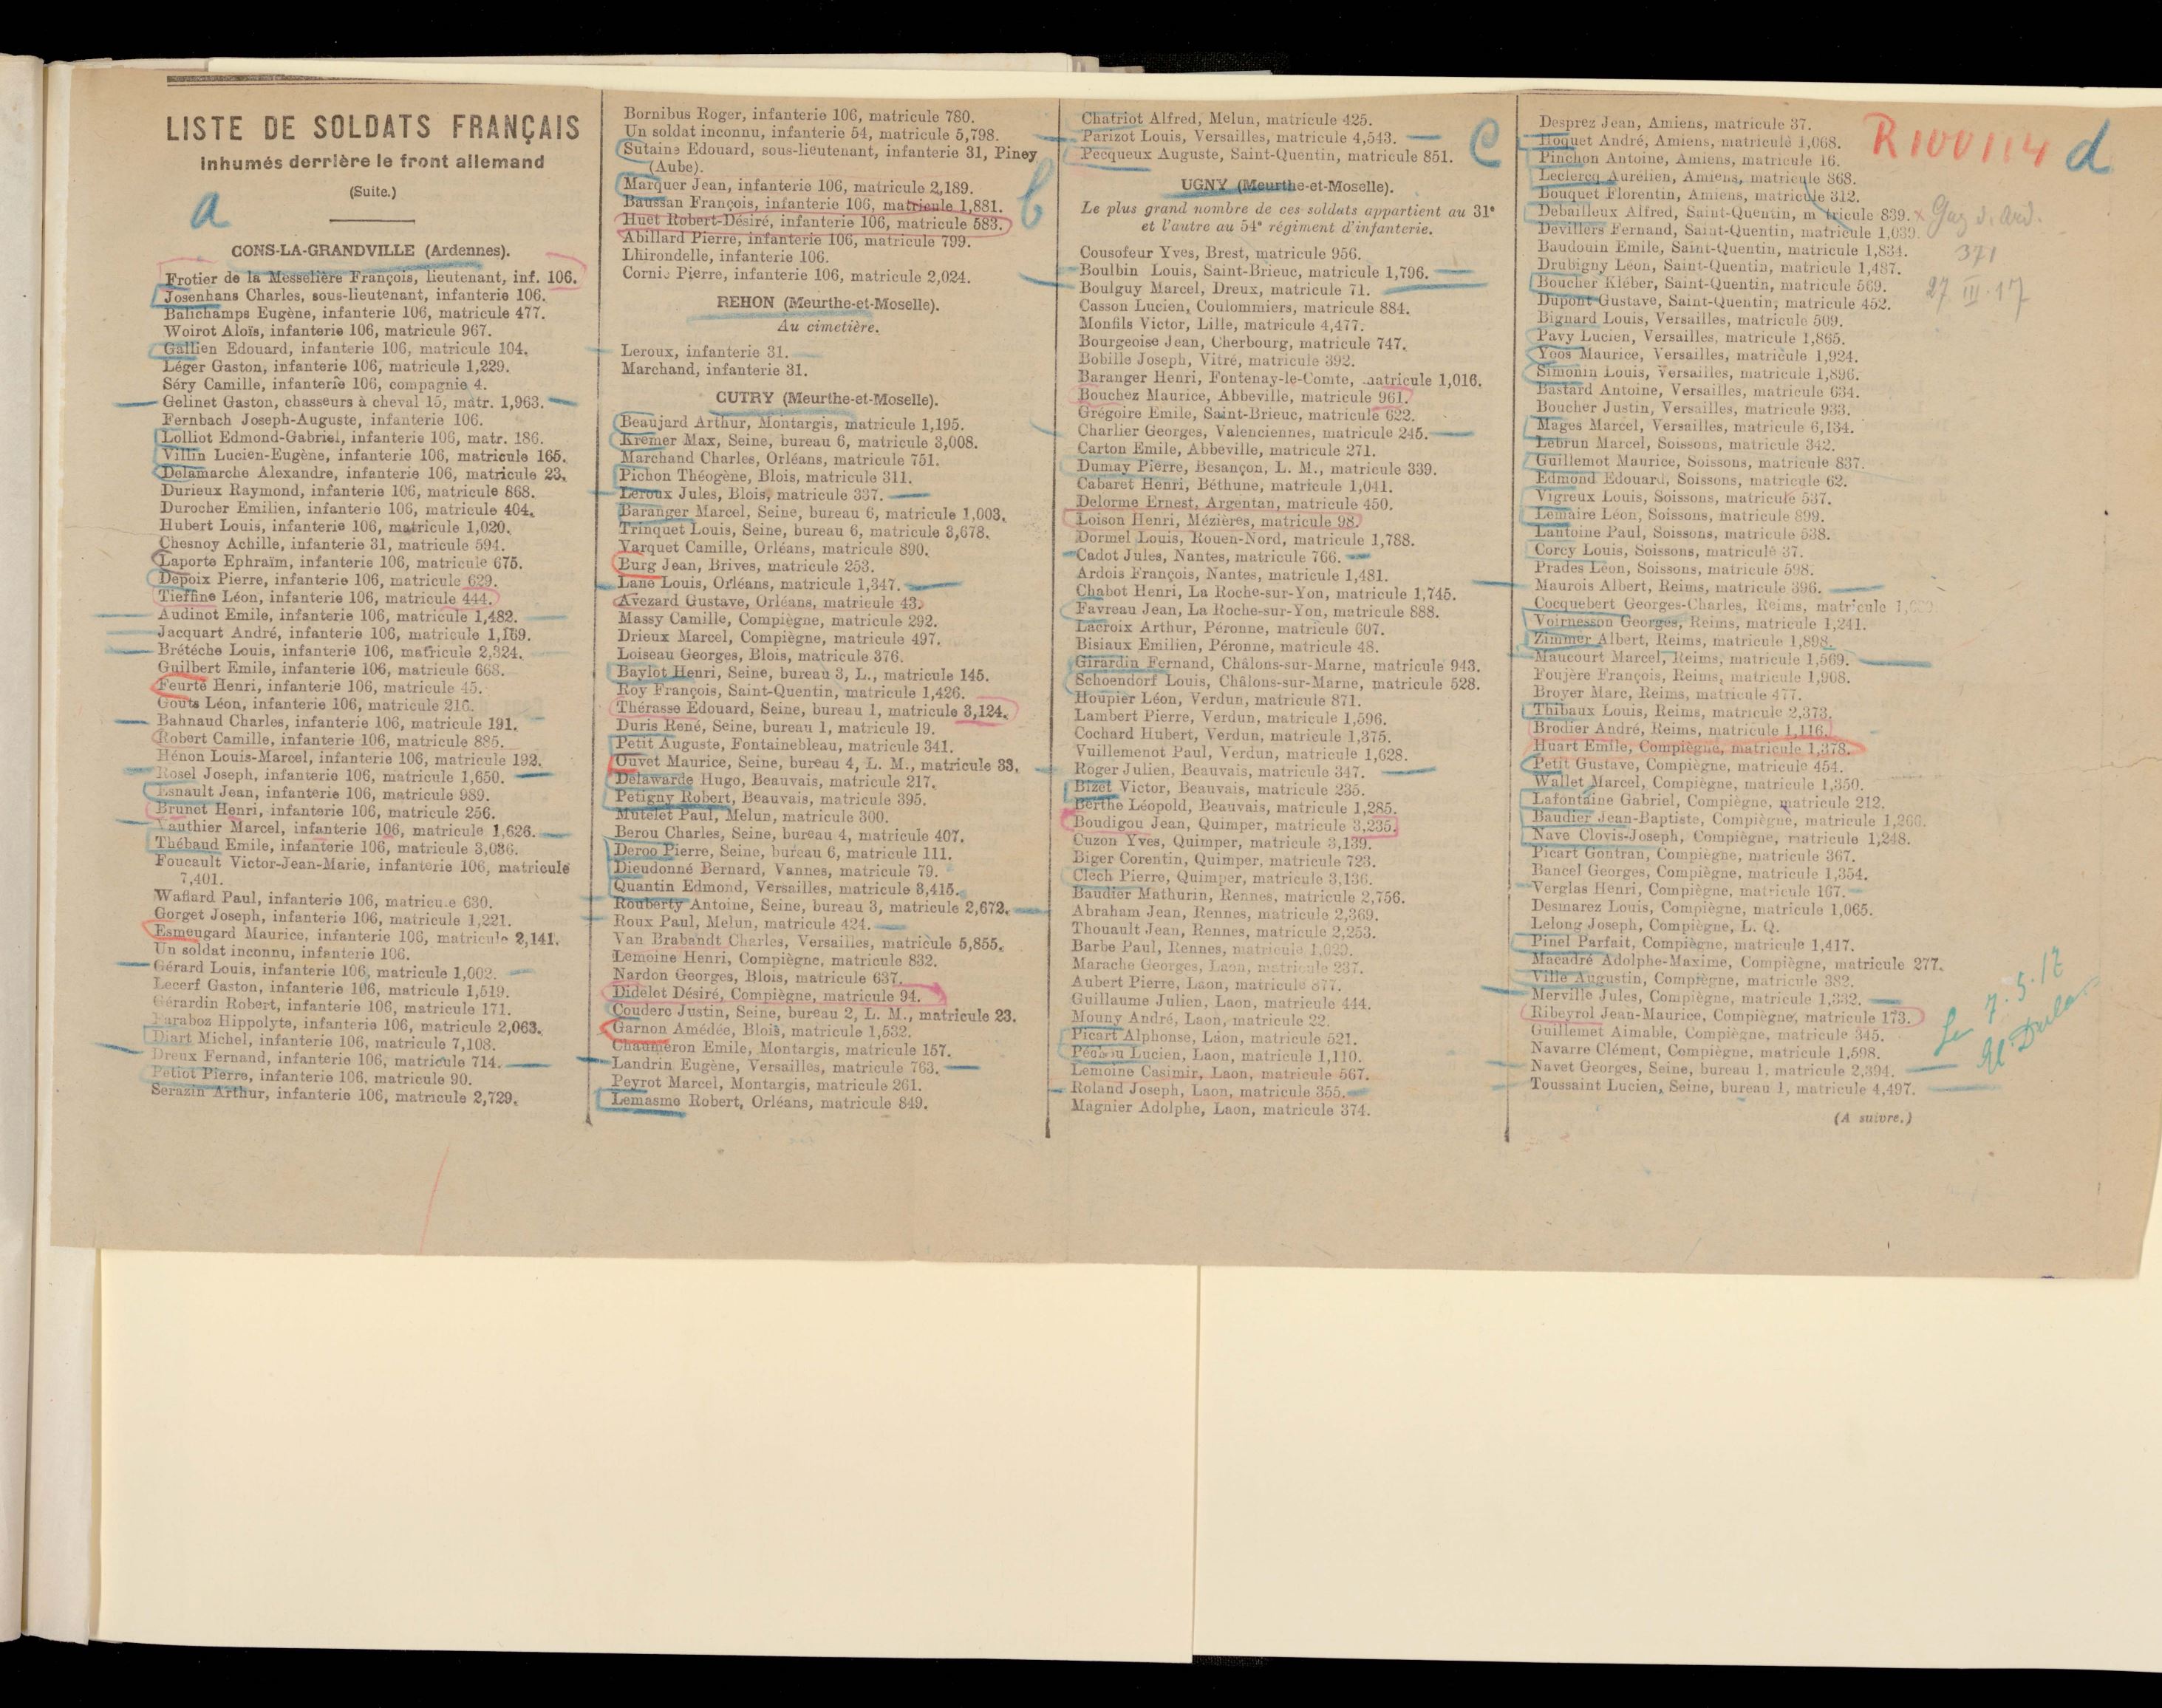 LISTE DE SOLDATS FRANÇAIS
inhumés derrière le front allemand
(Suite.)
a
CONS-LA-GRANDVILLE (Ardennes).
Frotier de la Messelière François, lieutenant, inf. 106.
Josenhans Charles, sous-lieutenant, infanterie 106.
Balichamps Eugène, infanterie 106, matricule 477.
Woirot Aloïs, infanterie 106, matricule 967.
Gallien Edouard, infanterie 106, matricule 104.
Léger Gaston, infanterie 106, matricule 1,229.
Séry Camille, infanterie 106, compagnie 4.
Gelinet Gaston, chasseurs à cheval 15, matr. 1,963.
Fernbach Joseph-Auguste, infanterie 106.
Lolliot Edmond-Gabriel, infanterie 106, matr. 186.
Villin Lucien-Eugène, infanterie 106, matricule 165.
Delamarche Alexandre, infanterie 106, matricule 23.
Durieux Raymond, infanterie 106, matricule 868.
Durocher Emilien, infanterie 106, matricule 404.
Hubert Louis, infanterie 106, matricule 1,020.
Chesnoy Achille, infanterie 31, matricule 594.
Laporte Ephraïm, infanterie 106, matricule 675.
Depoix Pierre, infanterie 106, matricule 629.
Tieffine Léon, infanterie 106, matricule 444.
Audinot Emile, infanterie 106, matricule 1,482.
Jacquart André, infanterie 106, matricule 1,169.
Brétéche Louis, infanterie 106, matricule 2,324.
Guilbert Emile, infanterie 106, matricule 668.
Feurté Henri, infanterie 106, matricule 45.
Gouts Léon, infanterie 106, matricule 216.
Bahnaud Charles, infanterie 106, matricule 191.
Robert Camille, infanterie 106, matricule 885.
Hénon Louis-Marcel, infanterie 106, matricule 192.
Rosel Joseph, infanterie 106, matricule 1,650.
Esnault Jean, infanterie 106, matricule 989.
Brunet Henri, infanterie 106, matricule 256.
Vauthier Marcel, infanterie 106, matricule 1,626.
Thébaud Emile, infanterie 106, matricule 3,036.
Foucault Victor-Jean-Marie, infanterie 106, matricule
7,401.
Waflard Paul, infanterie 106, matricule 630.
Gorget Joseph, infanterie 106, matricule 1,221.
Esmeugard Maurice, infanterie 106, matricule 2,141.
Un soldat inconnu, infanterie 106.
Gérard Louis, infanterie 106, matricule 1,002.
Lecerf Gaston, infanterie 106, matricule 1,519.
Gérardin Robert, infanterie 106, matricule 171.
Faraboz Hippolyte, infanterie 106, matricule 2,063.
Diart Michel, infanterie 106, matricule 7,108.
Dreux Fernand, infanterie 106, matricule 714.
Petiot Pierre, infanterie 106, matricule 90.
Serazin Arthur, infanterie 106, matricule 2,729.
Bornibus Roger, infanterie 106, matricule 780.
Un soldat inconnu, infanterie 54, matricule 5,798.
Sutaine Edouard, sous-lieutenant, infanterie 31, Piney
(Aube).
b
Marquer Jean, infanterie 106, matricule 2,189.
Baussan François, infanterie 106, matricule 1,881.
Huet Robert-Désiré, infanterie 106, matricule 583.
Abillard Pierre, infanterie 106, matricule 799.
Lhirondelle, infanterie 106.
Cornic Pierre, infanterie 106, matricule 2,024.
REHON (Meurthe-et-Moselle).
Au cimetière.
Leroux, infanterie 31.
Marchand, infanterie 31.
CUTRY (Meurthe-et-Moselle).
Beaujard Arthur, Montargis, matricule 1,195.
Kremer Max, Seine, bureau 6, matricule 3,008.
Marchand Charles, Orléans, matricule 751.
Pichon Théogène, Blois, matricule 311.
Leroux Jules, Blois, matricule 337.
Baranger Marcel, Seine, bureau 6, matricule 1,003.
Trinquet Louis, Seine, bureau 6, matricule 3,678.
Varquet Camille, Orléans, matricule 890.
Burg Jean, Brives, matricule 253.
Lane Louis, Orléans, matricule 1,347.
Avezard Gustave, Orléans, matricule 43.
Massy Camille, Compiègne, matricule 292.
Drieux Marcel, Compiègne, matricule 497.
Loiseau Georges, Blois, matricule 376.
Baylot Henri, Seine, bureau 3, L., matricule 145.
Roy François, Saint-Quentin, matricule 1,426.
Thérasse Edouard, Seine, bureau 1, matricule 3,124.
Duris René, Seine, bureau 1, matricule 19.
Petit Auguste, Fontainebleau, matricule 341.
Ouvet Maurice, Seine, bureau 4, L. M., matricule 33.
Delawarde Hugo, Beauvais, matricule 217.
Petigny Robert, Beauvais, matricule 395.
Mutelet Paul, Melun, matricule 300.
Berou Charles, Seine, bureau 4, matricule 407.
Deroo Pierre, Seine, bureau 6, matricule 111.
Dieudonné Bernard, Vannes, matricule 79.
Quantin Edmond, Versailles, matricule 3,415.
Rouberty Antoine, Seine, bureau 3, matricule 2,672.
Roux Paul, Melun, matricule 424.
Van Brabandt Charles, Versailles, matricule 5,855.
Lemoine Henri, Compiègne, matricule 832.
Nardon Georges, Blois, matricule 637.
Didelet Désiré, Compiègne, matricule 94.
Couderc Justin, Seine, bureau 2, L. M., matricule 23.
Garnon Amédée, Blois, matricule 1,532.
Chaumeron Emile, Montargis, matricule 157.
Landrin Eugène, Versailles, matricule 763.
Peyrot Marcel, Montargis, matricule 261.
Lemasme Robert, Orléans, matricule 849.
Chatriot Alfred, Melun, matricule 425.
Parizot Louis, Versailles, matricule 4,543.
Pecqueux Auguste, Saint-Quentin, matricule 851.
c
UGNY (Meurthe-et-Moselle).
Le plus grand nombre de ces soldats appartient au 31e
et l'autre au 54e régiment d'infanterie.
Cousofeur Yves, Brest, matricule 956.
Boulbin Louis, Saint-Brieuc, matricule 1,796.
Boulguy Marcel, Dreux, matricule 71.
Casson Lucien, Coulommiers, matricule 884.
Monfils Victor, Lille, matricule 4,477.
Bourgeoise Jean, Cherbourg, matricule 747.
Bobille Joseph, Vitré, matricule 392.
Baranger Henri, Fontenay-le-Comte, matricule 1,016.
Bouchez Maurice, Abbeville, matricule 961.
Grégoire Emile, Saint-Brieuc, matricule 622.
Charlier Georges, Valenciennes, matricule 245.
Carton Emile, Abbeville, matricule 271.
Dumay Pierre, Besançon, L. M., matricule 339.
Cabaret Henri, Béthune, matricule 1,041.
Delorme Ernest, Argentan, matricule 450.
Loison Henri, Mézières, matricule 98.
Dormel Louis, Rouen-Nord, matricule 1,788.
Cadot Jules, Nantes, matricule 766.
Ardois François, Nantes, matricule 1,481.
Chabot Henri, La Roche-sur-Yon, matricule 1,745.
Favreau Jean, La Roche-sur-Yon, matricule 888.
Lacroix Arthur, Péronne, matricule 607.
Bisiaux Emilien, Péronne, matricule 48.
Girardin Fernand, Châlons-sur-Marne, matricule 943.
Schoendorf Louis, Châlons-sur-Marne, matricule 528.
Houpier Léon, Verdun, matricule 871.
Lambert Pierre, Verdun, matricule 1,596.
Cochard Hubert, Verdun, matricule 1,375.
Vuillemenot Paul, Verdun, matricule 1,628.
Roger Julien, Beauvais, matricule 347.
Bizet Victor, Beauvais, matricule 235.
Berthe Léopold, Beauvais, matricule 1,285.
Boudigou Jean, Quimper, matricule 3,235.
Cuzon Yves, Quimper, matricule 3,139.
Biger Corentin, Quimper, matricule 723.
Clech Pierre, Quimper, matricule 3,136.
Baudier Mathurin, Rennes, matricule 2,756.
Abraham Jean, Rennes, matricule 2,369.
Thouault Jean, Rennes, matricule 2,253.
Barbe Paul, Rennes, matricule
Marache Georges, Laon, matricule 237.
Aubert Pierre, Laon, matricule 877.
Guillaume Julien, Laon, matricule 444.
Mouny André, Laon, matricule 22.
Picart Alphonse, Laon, matricule 521.
Lucien, Laon, matricule 1,110.
Lemoine Casimir, Laon, matricule 567.
Roland Joseph, Laon, matricule 355.
Magnier Adolphe, Laon, matricule 374.
R 100114 d
Desprez Jean, Amiens, matricule 37.
Hoquet André, Amiens, matricule 1,068.
Pinchon Antoine, Amiens, matricule 16.
Leclercq Aurélien, Amiens, matricule 868.
Bouquet Florentin, Amiens, matricule 312.
Debailloux Alfred, Saint-Quentin, m tricule 839. x Gaz d. Ard.
Devillers Fernand, Saint-Quentin, matricule 1,039.
Baudouin Emile, Saint-Quentin, matricule 1,834. 371
Drubigny Léon, Saint-Quentin, matricule 1,487.
Boucher Kléber, Saint-Quentin, matricule 569. 27 III 17
Dupont Gustave, Saint-Quentin, matricule 452.
Bignard Louis, Versailles, matricule 509.
Pavy Lucien, Versailles, matricule 1,865.
Yoos Maurice, Versailles, matricule 1,924.
Simonin Louis, Versailles, matricule 1,896.
Bastard Antoine, Versailles, matricule 634.
Boucher Justin, Versailles, matricule 933.
Mages Marcel, Versailles, matricule 6,134.
Lebrun Marcel, Soissons, matricule 342.
Guillemot Maurice, Soissons, matricule 837.
Edmond Edouard, Soissons, matricule 62.
Vigreux Louis, Soissons, matricule 537.
Lemaire Léon, Soissons, matricule 899.
Lantoine Paul, Soissons, matricule 538.
Corcy Louis, Soissons, matricule 37.
Prades Léon, Soissons, matricule 598.
Maurois Albert, Reims, matricule 396.
Cocquebert Georges-Charles, Reims, matricule
Voirnesson Georges, Reims, matricule 1,241.
Zimmer Albert, Reims, matricule 1,898.
Maucourt Marcel, Reims, matricule 1,569.
Foujère François, Reims, matricule 1,908.
Broyer Marc, Reims, matricule 477.
Thibaux Louis, Reims, matricule 2,373.
Brodier André, Reims, matricule 1,116.
Huart Emile, Compiègne, matricule 1,378.
Petit Gustave, Compiègne, matricule 454.
Wallet Marcel, Compiègne, matricule 1,350.
Lafontaine Gabriel, Compiègne, matricule 212.
Baudier Jean-Baptiste, Compiègne, matricule
Nave Clovis-Joseph, Compiègne, matricule 1,248.
Picart Gontran, Compiègne, matricule 367.
Bancel Georges, Compiègne, matricule 1,354.
Verglas Henri, Compiègne, matricule 167.
Desmarez Louis, Compiègne, matricule 1,065.
Lelong Joseph, Compiègne, L. Q.
Pinel Parfait, Compiègne, matricule 1,417.
Macadré Adolphe-Maxime, Compiègne, matricule 277.
Ville Augustin, Compiègne, matricule 382.
Merville Jules, Compiègne, matricule 1,332.
Ribeyrol Jean-Maurice, Compiègne, matricule 173.
Guillemet Aimable, Compiègne, matricule 345.
Navarre Clément, Compiègne, matricule 1,598.
Navet Georges, Seine, bureau 1, matricule 2,394.
Toussaint Lucien, Seine, bureau 1, matricule 4,497.
(A suivre.)
7.5.17